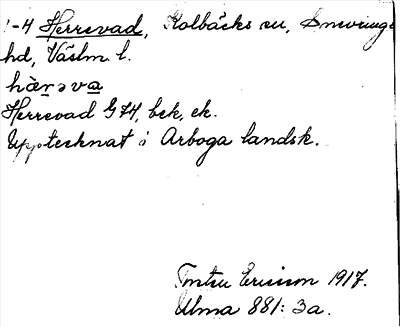 1-4 Herrevad, Kolbäcks sn, Snevringe
hd, Västm. l.
hàrəva
Herrevad G74, bek, ek.
Upptecknat i Arboga landsk.
Ericsson 1917.
Ulma 881: 3a.